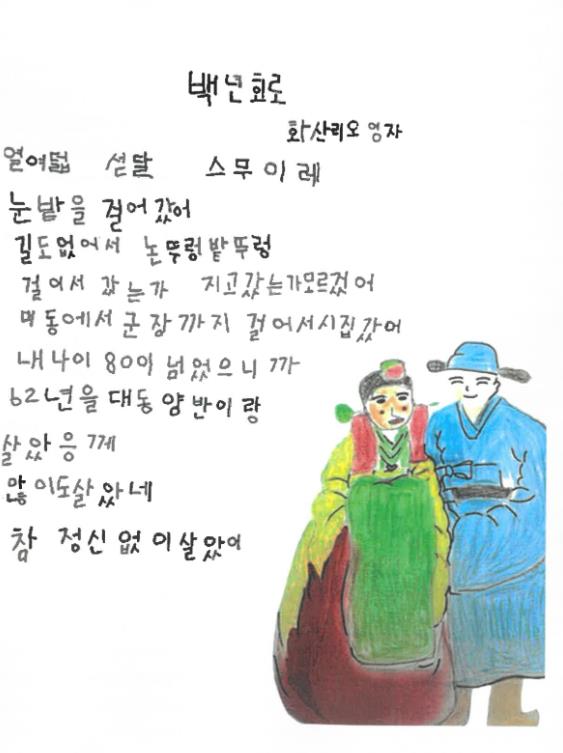 백년회로
화산리오영자
열여덟 섣달 스무이레
눈밭을 걸어갔어
길도없어서 논뚜렁밭뚜렁
걸어서 갔는가 지고갔는가모르겄어
대동에서 군장까지 걸어서시집갔어
내나이 80이 넘었으니까
62년을 대동양반이랑
살았응께
많이도살았네
참 정신없이살았어